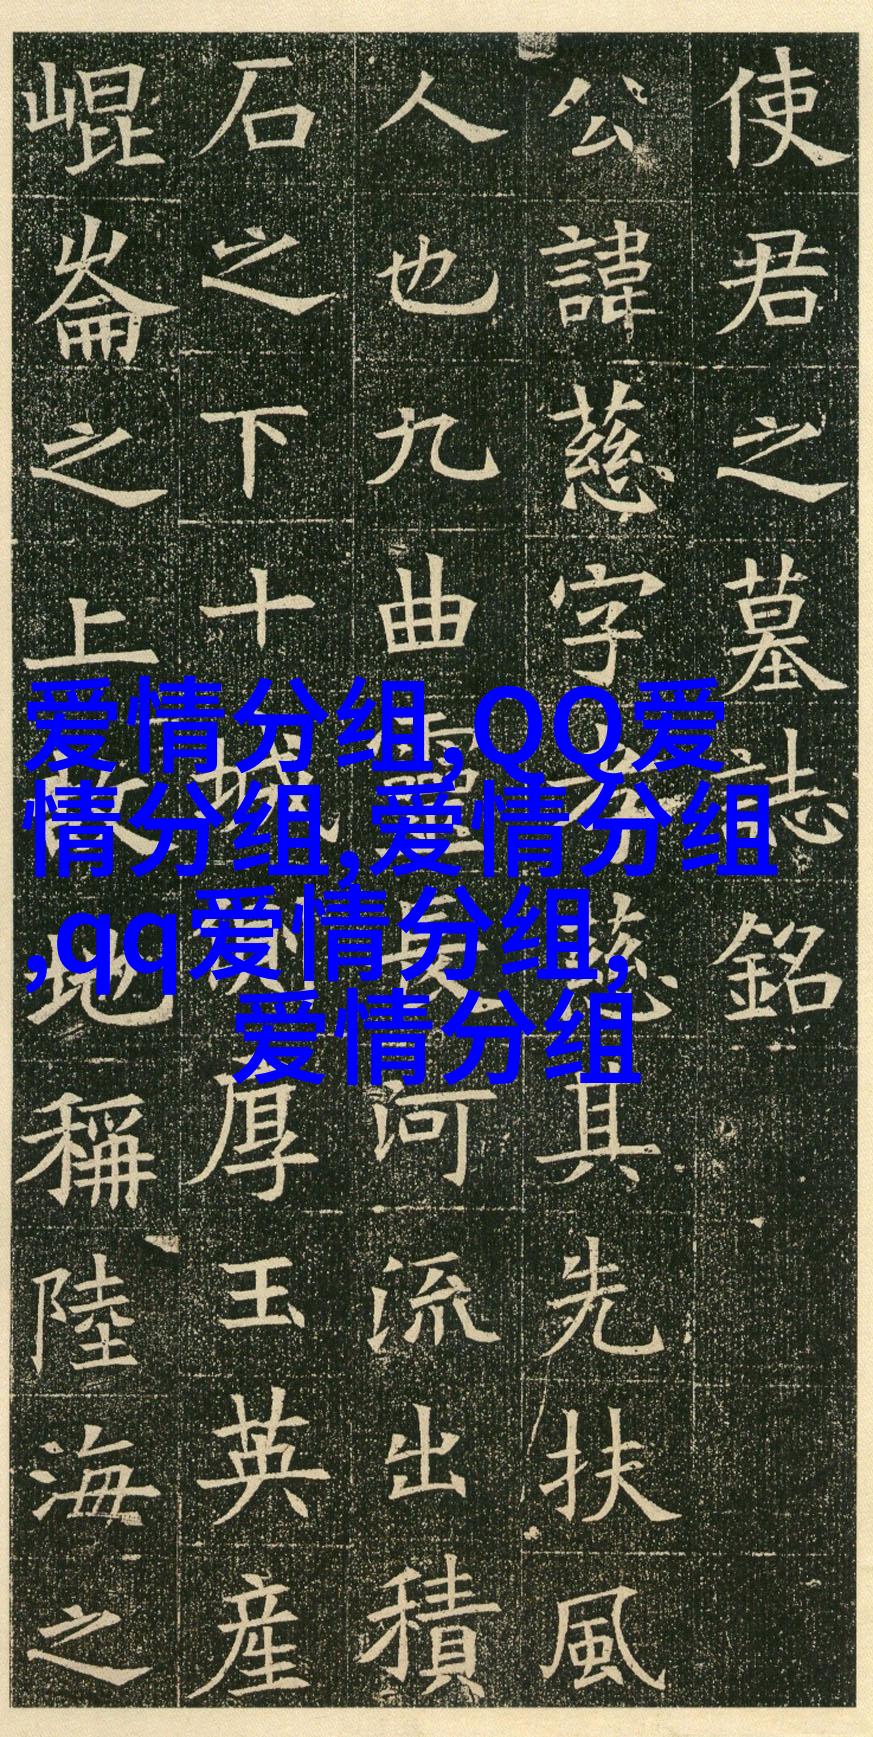 使君之墓誌銘
公諱慈字慈其先扶風
人也九曲靈長河流出積
石之下十城厚玉英産
崐崙之上故地稱陸海之
爱情分组,QQ爱
情分组,爱情分组
,qq爱情分组,
爱情分组